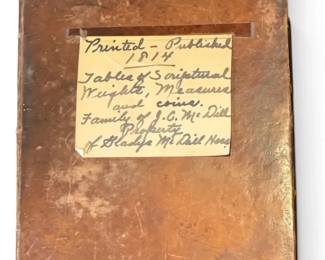 Printed - Published
1814
Tables of Scriptural
Weights, Measures
and coins.
Family of J.C. McDill
Property
of Gladys McDill